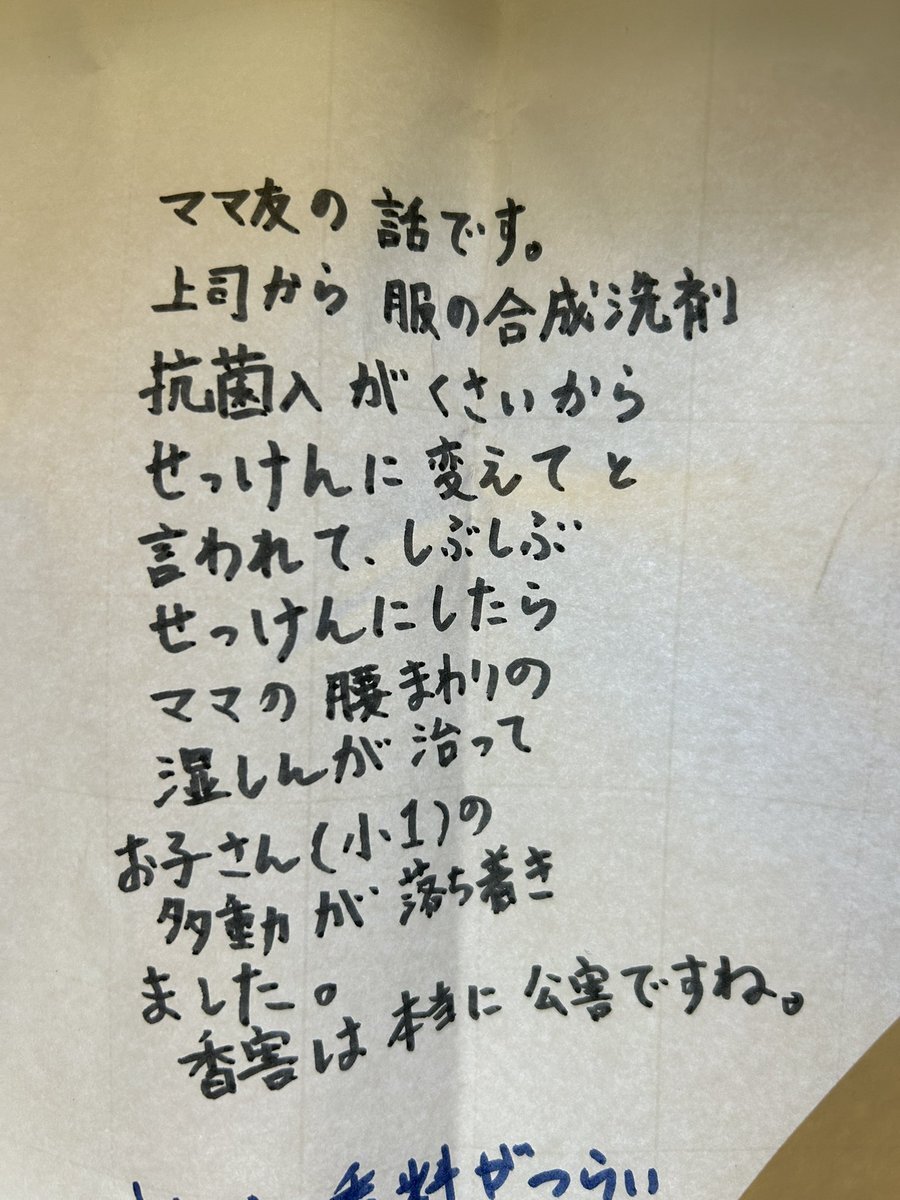 ママ友の話です。
上司から服の合成洗剤
抗菌入がくさいから
せっけんに変えてと
言われて、しぶしぶ
せっけんにしたら
ママの腰まわりの
湿しんが治って
お子さん(小1)の
多動が落ち着き
ました。
香害は本当に公害ですね。
香料がつらい